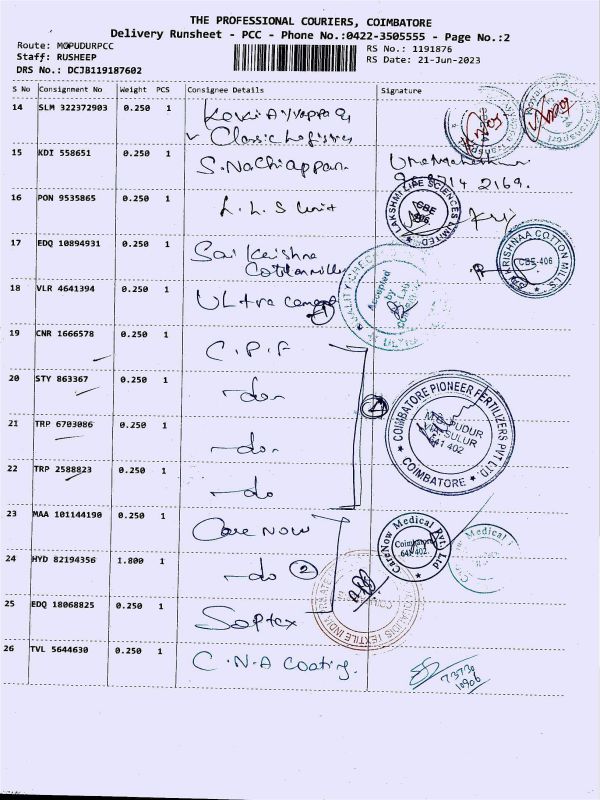 THE PROFESSIONAL COURIERS, COIMBATORE
Delivery Runsheet - PCC - Phone No.:0422-3505555 - Page No.:2
Route: MOPUDURPCC
RS No.: 1191876
Staff: RUSHEEP
RS Date: 21-Jun-2023
DRS No.: DCJB119187602
S No Consignment No Weight PCS Consignee Details Signature
14 SLM 322372903 0.250 1
Classic Logistics
15 KDI 558651 0.250 1 S. Nachiappan.
2169.
16 PON 9535865 0.250 1 L.L.S Unit
LAKSHMI LIFE SCIENCES LIMITED
CBE
17 EDQ 10894931 0.250 1 Sai Krishna
Cottonmills
SRI KRISHNAA COTTON MILLS
CBE-406
18 VLR 4641394 0.250 1 Ultra cement
Accepted
by
19 CNR 1666578 0.250 1 C.P.F
20 STY 863367 0.250 1 -do-
21 TRP 6703086 0.250 1 -do-
COIMBATORE PIONEER FERTILIZERS PVT LTD.
PUDUR
VIA SULUR
641 402
COIMBATORE
22 TRP 2588823 0.250 1 -do
23 MAA 101144190 0.250 1 Care Now
CareNow Medical Pvt. Ltd
Coimbatore
641 402
24 HYD 82194356 1.800 1 -do 2
25 EDQ 18068825 0.250 1 Softex
TEXTILE INDIA PRIVATE
26 TVL 5644630 0.250 1 C.N.A Coating.
73730
10906